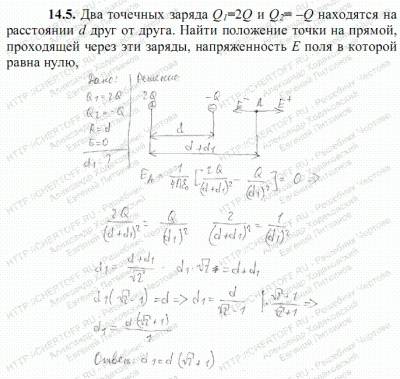 14.5. Два точечных заряда Q₁=2Q и Q₂= –Q находятся на
расстоянии d друг от друга. Найти положение точки на прямой,
проходящей через эти заряды, напряженность E поля в которой
равна нулю,
Дано: Решение
Q₁=2Q
Q₂=-Q
R=d
E=0
d₁ ?
2Q -Q E⁻ A E⁺
d
d+d₁
E_A = 1/(4πε₀) [2Q/(d+d₁)² - Q/(d₁)²] = 0 ⇒
2Q/(d+d₁)² = Q/(d₁)² 2/(d+d₁)² = 1/(d₁)²
d₁ = (d+d₁)/√2 d₁·√2 = d+d₁
d₁(√2-1) = d ⇒ d₁ = d/(√2-1) | · (√2+1)/(√2+1) ⇒
d₁ = d(√2+1)/1
Ответ: d₁=d(√2+1)
HTTP://CHERTOFF.RU - Решебник Чертова
Александр Питолкин